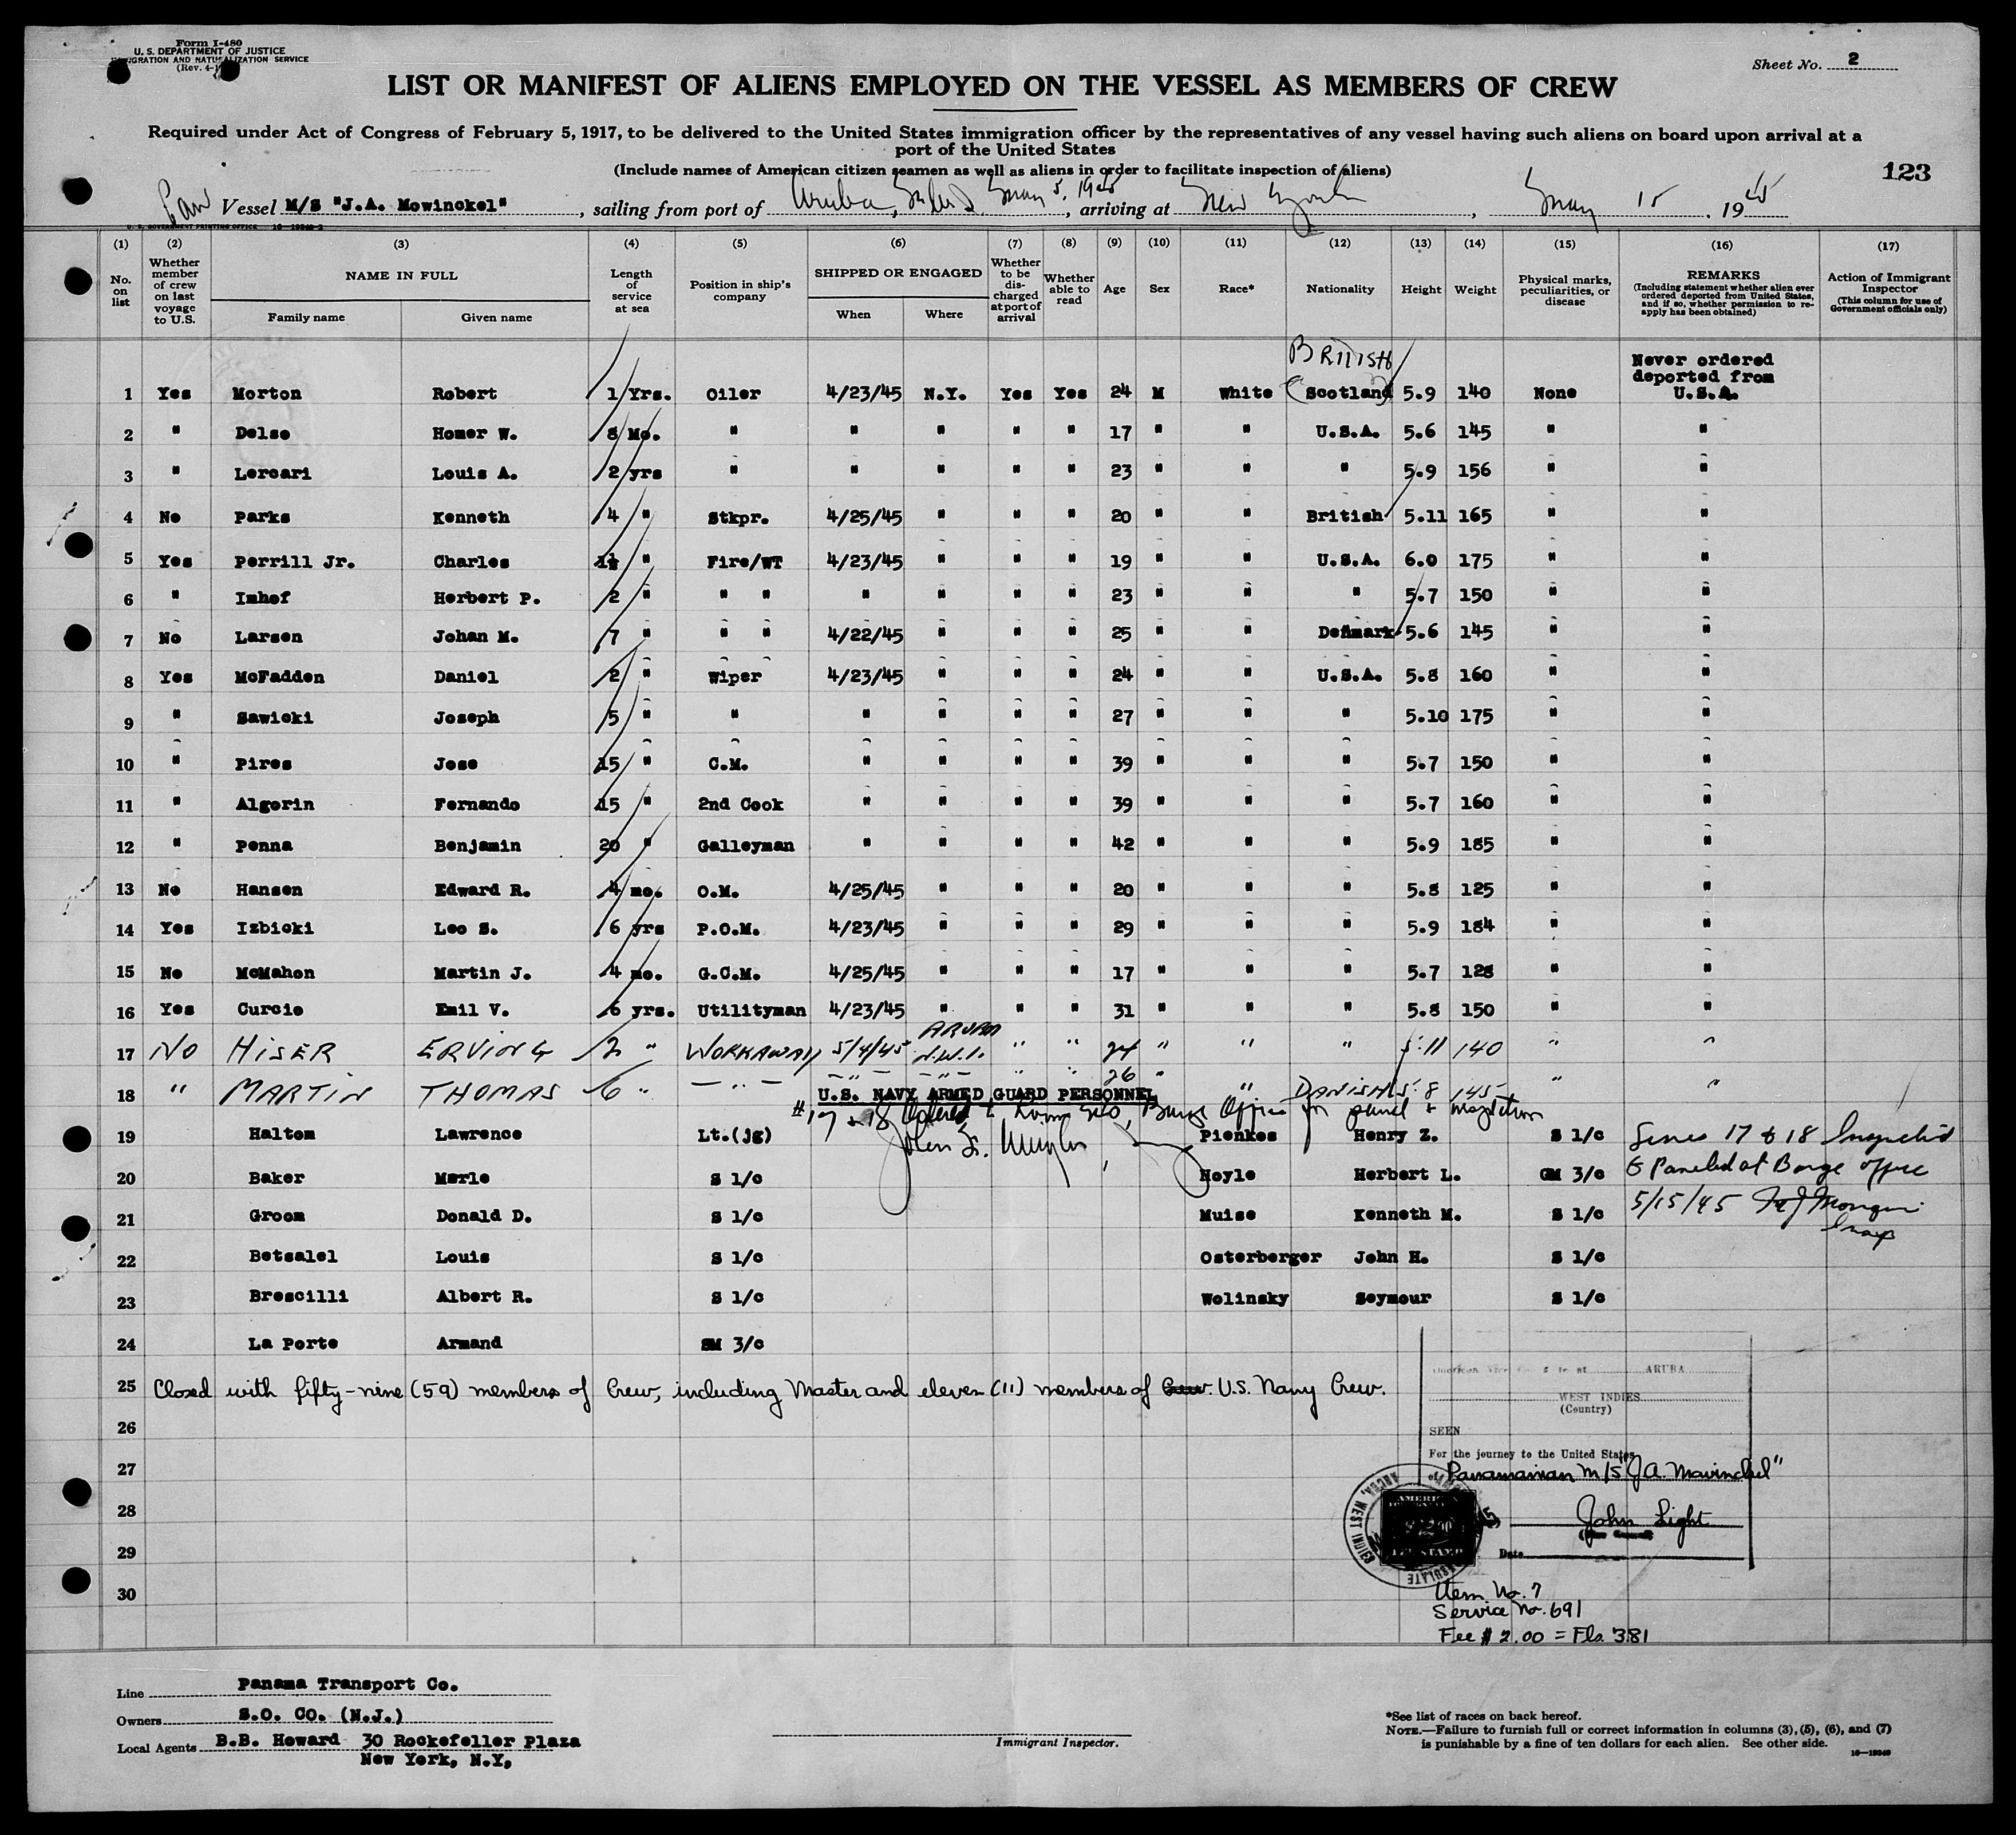 Form I-480
U. S. DEPARTMENT OF JUSTICE
IMMIGRATION AND NATURALIZATION SERVICE
(Rev. 4-1
Sheet No. 2
LIST OR MANIFEST OF ALIENS EMPLOYED ON THE VESSEL AS MEMBERS OF CREW
Required under Act of Congress of February 5, 1917, to be delivered to the United States immigration officer by the representatives of any vessel having such aliens on board upon arrival at a
port of the United States
(Include names of American citizen seamen as well as aliens in order to facilitate inspection of aliens)
123
Pan Vessel M/S "J.A. Mowinckel", sailing from port of Aruba, May 5, 1945, arriving at New York, May 15, 1945
U. S. GOVERNMENT PRINTING OFFICE
(1) (2) (3) (4) (5) (6) (7) (8) (9) (10) (11) (12) (13) (14) (15) (16) (17)
No. on list Whether member of crew on last voyage to U.S. NAME IN FULL Family name Given name Length of service at sea Position in ship's company SHIPPED OR ENGAGED When Where Whether to be discharged at port of arrival Whether able to read Age Sex Race* Nationality Height Weight Physical marks, peculiarities, or disease REMARKS (Including statement whether alien ever ordered deported from United States, and if so, whether permission to re-apply has been obtained) Action of Immigrant Inspector (This column for use of Government officials only)
BRITISH Never ordered deported from U.S.A.
1 Yes Morton Robert 1 Yrs. Oiler 4/23/45 N.Y. Yes Yes 24 M White (Scotland) 5.9 140 None
2 " Delse Homer W. 8 Mo. " " " " " 17 " " U.S.A. 5.6 145 " "
3 " Lercari Louis A. 2 yrs " " " " " 23 " " " 5.9 156 " "
4 No Parks Kenneth 4 " Stkpr. 4/25/45 " " " 20 " " British 5.11 165 " "
5 Yes Perrill Jr. Charles 1½ " Fire/WT 4/23/45 " " " 19 " " U.S.A. 6.0 175 " "
6 " Imhof Herbert P. 2 " " " " " " " 23 " " " 5.7 150 " "
7 No Larsen Johan M. 7 " " " 4/22/45 " " " 25 " " Denmark 5.6 145 " "
8 Yes McFadden Daniel 2 " Wiper 4/23/45 " " " 24 " " U.S.A. 5.8 160 " "
9 " Sawicki Joseph 5 " " " " " " 27 " " " 5.10 175 " "
10 " Pires Jose 15 " C.M. " " " " 39 " " " 5.7 150 " "
11 " Algorin Fernando 15 " 2nd Cook " " " " 39 " " " 5.7 160 " "
12 " Penna Benjamin 20 " Galleyman " " " " 42 " " " 5.9 185 " "
13 No Hansen Edward R. 4 mo. O.M. 4/25/45 " " " 20 " " " 5.8 125 " "
14 Yes Izbicki Leo S. 6 yrs P.O.M. 4/23/45 " " " 29 " " " 5.9 184 " "
15 No McMahon Martin J. 4 mo. G.C.M. 4/25/45 " " " 17 " " " 5.7 128 " "
16 Yes Curcio Emil V. 6 yrs. Utilityman 4/23/45 " " " 31 " " " 5.8 150 " "
17 NO HISER ERVING 2 " WORKAWAY 5/4/45 ARUBA N.W.I. " " 24 " " " 5.11 140 " "
18 " MARTIN THOMAS 6 " " " " " " 26 " " DANISH 5.8 145 " "
U.S. NAVY ARMED GUARD PERSONNEL
#17 & 18 Barge Office for panel &
19 Haltom Lawrence Lt.(jg) Pienkos Henry Z. S 1/c
20 Baker Merle S 1/c Hoyle Herbert L. GM 3/c
21 Groom Donald D. S 1/c Muise Kenneth M. S 1/c
22 Betsalel Louis S 1/c Osterberger John H. S 1/c
23 Brescilli Albert R. S 1/c Wolinsky Seymour S 1/c
24 La Porte Armand SM 3/c
Lines 17 & 18 Inspected
& Paneled at Barge Office
5/15/45
Insp
25 Closed with fifty-nine (59) members of Crew, including Master and eleven (11) members of Crew. U.S. Navy Crew.
26
27
28
29
30
ARUBA
WEST INDIES
(Country)
SEEN
For the journey to the United States
Panamanian M/S "J.A. Mowinckel"
John Light
Date
Item No. 7
Service No. 691
Fee $2.00 = Fls. 3.81
Line Panama Transport Co.
Owners S.O. CO. (N.J.)
Local Agents B.B. Howard 30 Rockefeller Plaza
New York, N.Y,
Immigrant Inspector.
*See list of races on back hereof.
NOTE.—Failure to furnish full or correct information in columns (3), (5), (6), and (7)
is punishable by a fine of ten dollars for each alien. See other side.